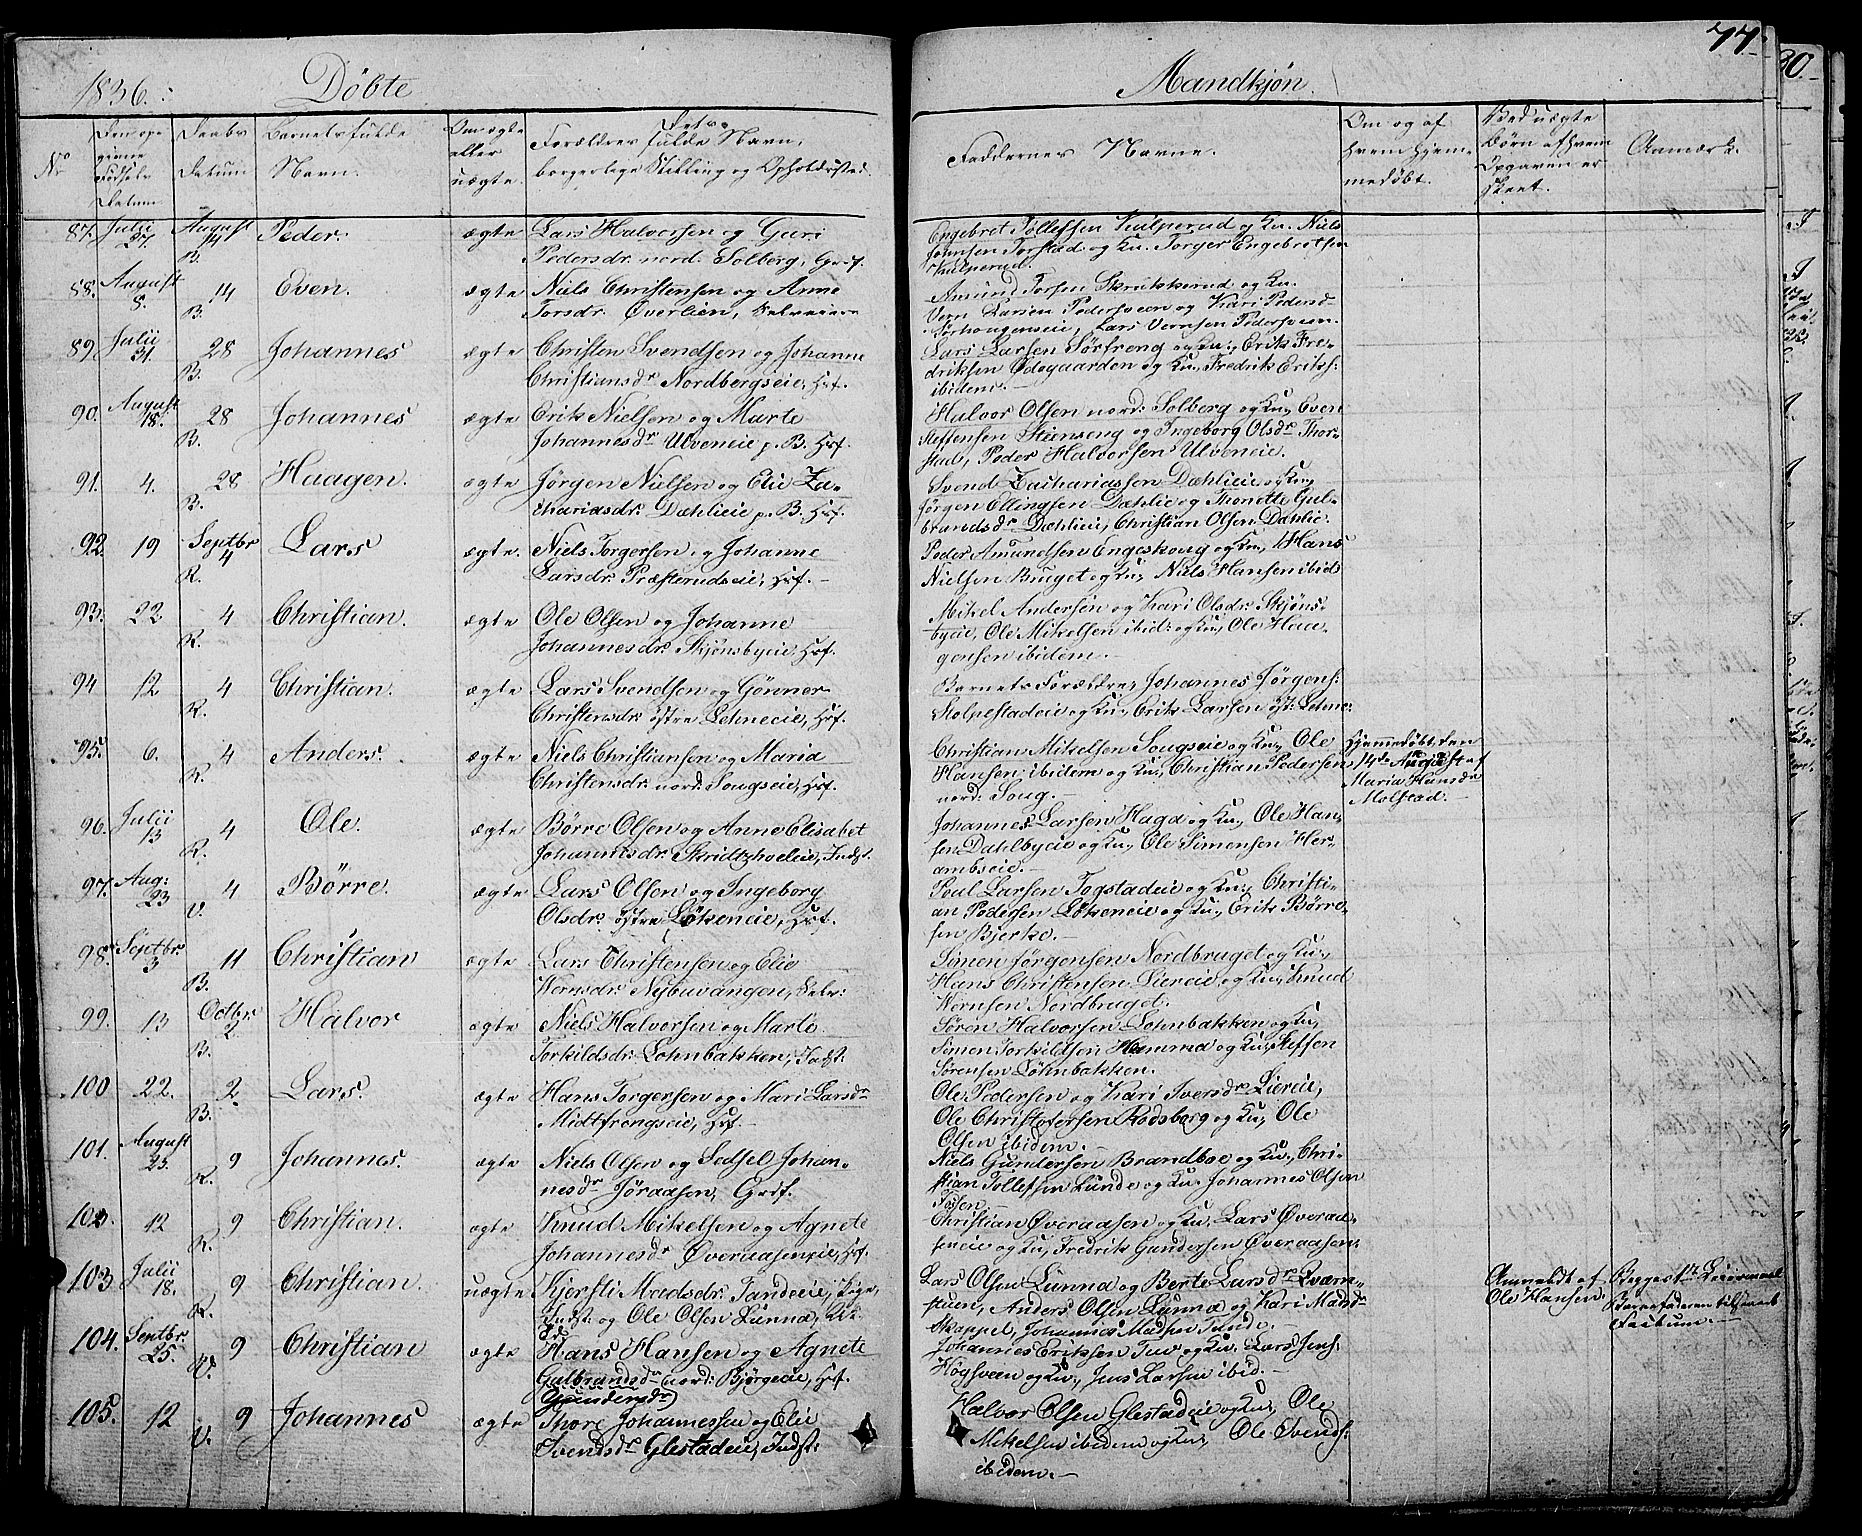 77.
1836. Döbte Mandkjön.
No
Den op-
givne
Födsels
Datum
Daabs
Datum
Barnets fulde
Navn.
Om ægte
eller
uægte.
Forældres fulde Navn,
borgerlige Stilling og Opholdssted.
Faddernes Navne.
Om og af
hvem hjem-
medöbt.
Ved uægte
Börn af hvem
Opgaven er
skeet.
Anmærk.
87. Julii 27. August 14 B. Peder. ægte
Lars Halvorsen og Guri
Pedersdr. nord. Solberg, Grdf.
Engebret Tollefsen Kulperud og Ku. Niels
Johnsen Torstad og Ku. Torger Engebretsen
Kulperud.
88. August 8. 14 B. Even. ægte
Niels Christensen og Anne
Torsdr. Överlien, Selveiere
Amund Torsen Skrukkerud og Ku.
Vern Larsen Pedersveen og Kari Pedersd
Lars Vernsen Pedersveen.
89. Julii 31. 28 B. Johannes ægte
Christen Svendsen og Johanne
Christiansdr Nordbergseie, Hsf.
Lars Larsen Sörfreng og Ku., Erik Fre-
driksen Ödegaarden og Ku., Fredrik Eriks:
ibidem.
90. August 18. 28 B. Johannes ægte
Erik Nielsen og Marte
Johannesdr Ulveneie p. B. Hsf.
Halvor Olsen nord: Solberg og Ku., Even
Steffensen Steenseng og Ingeborg Olsdr Thor-
stad, Peder Halvorsen Ulveneie.
91. 4. 28 B. Haagen. ægte
Jörgen Nielsen og Elie Za-
chariasdr. Dæhlieie p. B. Hsf.
Svend Zachariassen Dæhlieie og Ku.,
Jörgen Ellingsen Dæhlie og Thonette Gul-
brandsdr Dæhlieie, Christian Olsen Dæhlie.
92. 19 Septbr 4 R. Lars ægte.
Niels Torgersen og Johanne
Larsdr. Præsterudseie, Hsf.
Peder Amundsen Engeskoug og Ku., Hans
Nielsen Bruget og Ku., Niels Hansen ibid
93. 22 4 R. Christian. ægte
Ole Olsen og Johanne
Johannesdr. Skjönsbyeie, Hsf.
Mikel Andersen og Kari Olsdr. Skjöns-
byeie, Ole Mikelsen ibid: og Ku., Ole Haa-
gensen ibidem.
94 12 4 R. Christian. ægte
Lars Svendsen og Gönner
Christensdr. östre Lehneeie, Hsf.
Barnets Forældre, Johannes Jörgens:
Stolpestadeie og Ku., Erik Larsen öst: Lehne:
95. 6. 4 R. Anders. ægte
Niels Christiansen og Maria
Christensdr. nord: Sougseie, Hsf.
Christian Mikelsen Sougseie og Ku., Ole
Hansen ibidem og Ku., Christian Pedersen
nord: Soug.
Hjemmedöbt, den
14de August af
Maria Hansdr
Molstad.
96. Julii 13 4 R. Ole. ægte
Börre Olsen og Anne Elisabet
Johannesdr. Skridtshoeleie, Indst.
Johannes Larsen Haga og Ku., Ole Han-
sen Dahlbyeie og Ku., Ole Simensen Her-
ambseie.
97. Aug: 23 4 V. Börre. ægte
Lars Olsen og Ingeborg
Olsdr. östre Lökeneie, Hsf.
Poul Larsen Togstadeie og Ku., Christi-
an Pedersen Lökeneie og Ku., Erik Börre-
sen Bjerke.
98. Septbr. 3 11 B. Christian ægte
Lars Christensen og Elie
Vernsdr. Nybuvangen, Selv:
Simen Jörgensen Nordbruget og Ku.,
Hans Christensen Liereie og Ku., Knud
Vernsen Nordbruget.
99. 13 Octbr 2. B. Halvor ægte
Niels Halvorsen og Marte
Torkildsdr. Löhnbakken, Indst:
Sören Halvorsen Löhnbakken og Ku.,
Simen Torkildsen Hemma og Ku., Steffen
Sörensen Löhnbakken.
100 22. 2 B. Lars. ægte
Hans Torgersen og Mari Larsdr
Midtfrengseie, Hsf.
Ole Pedersen og Kari Iversdr Liereie,
Ole Christofersen Rodsberg og Ku., Ole
Olsen ibidem.
101. August 23. 9 R. Johannes. ægte
Niels Olsen og Sedsel Johan-
nesdr Jöraasen, Grdf.
Niels Gundersen Brandboe og Ku., Chri-
stian Tollefsen Lunde og Ku. Johannes Olsen
102. 12 9 R. Christian. ægte
Knud Mikelsen og Agnete
Johannesdr Överaasenseie, Hsf.
Christian Överaasen og Ku., Lars Överaa-
seneie og Ku., Fredrik Gundersen Överaasen.
103 Julii 18. 9 R. Christian. uægte
Kjersti Madsdr. Tandeeie, Pige,
Indst. og Ole Olsen Lunna,
Lars Olsen Lunna og Berte Larsdr Kværn-
stuen, Anders Olsen Lunna og Kari Madsd
Skappel, Johannes Madsen Tande.
Anmeldt af
Ole Hansen.
Begges 1ste Leiermaal
Barnefaderen tilstaaet
Factum.
104. Septbr. 25. 9 V. Christian ægte
Hans Hansen og Agnete
Gulbrandsdr nord: Björgeeie, Hsf.
Gundersdr)
Johannes Eriksen Tuv og Ku. Lars Jens:
Högsveen og Ku., Jens Larsen ibid.
105. 12 9 V. Johannes ægte
Thore Johannessen og Elie
Svendsdr Glestadeie, Indst:
Halvor Olsen Glestadeie og Ku., Ole
Mikelsen ibidem og Ku., Ole Svends:
ibidem.